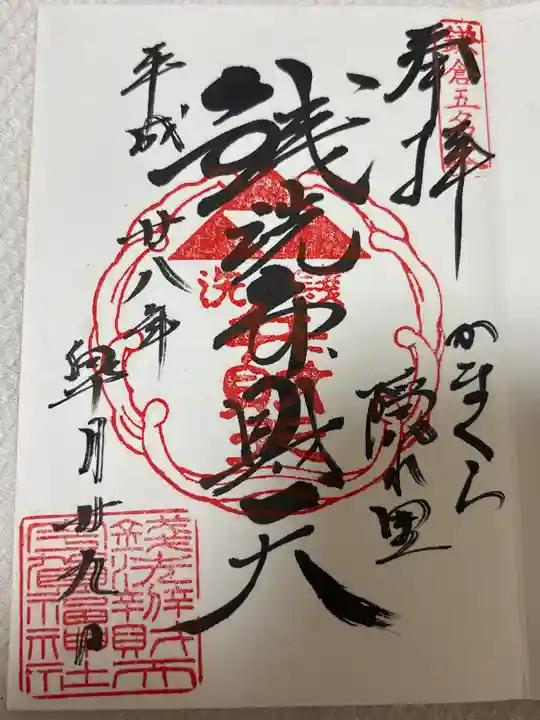 鎌倉五名水
奉拝
かまくら
隠れ里
銭洗弁財天
平成廿八年皐月廿九日
銭洗
弁財天
銭洗弁財天
宇賀福神社